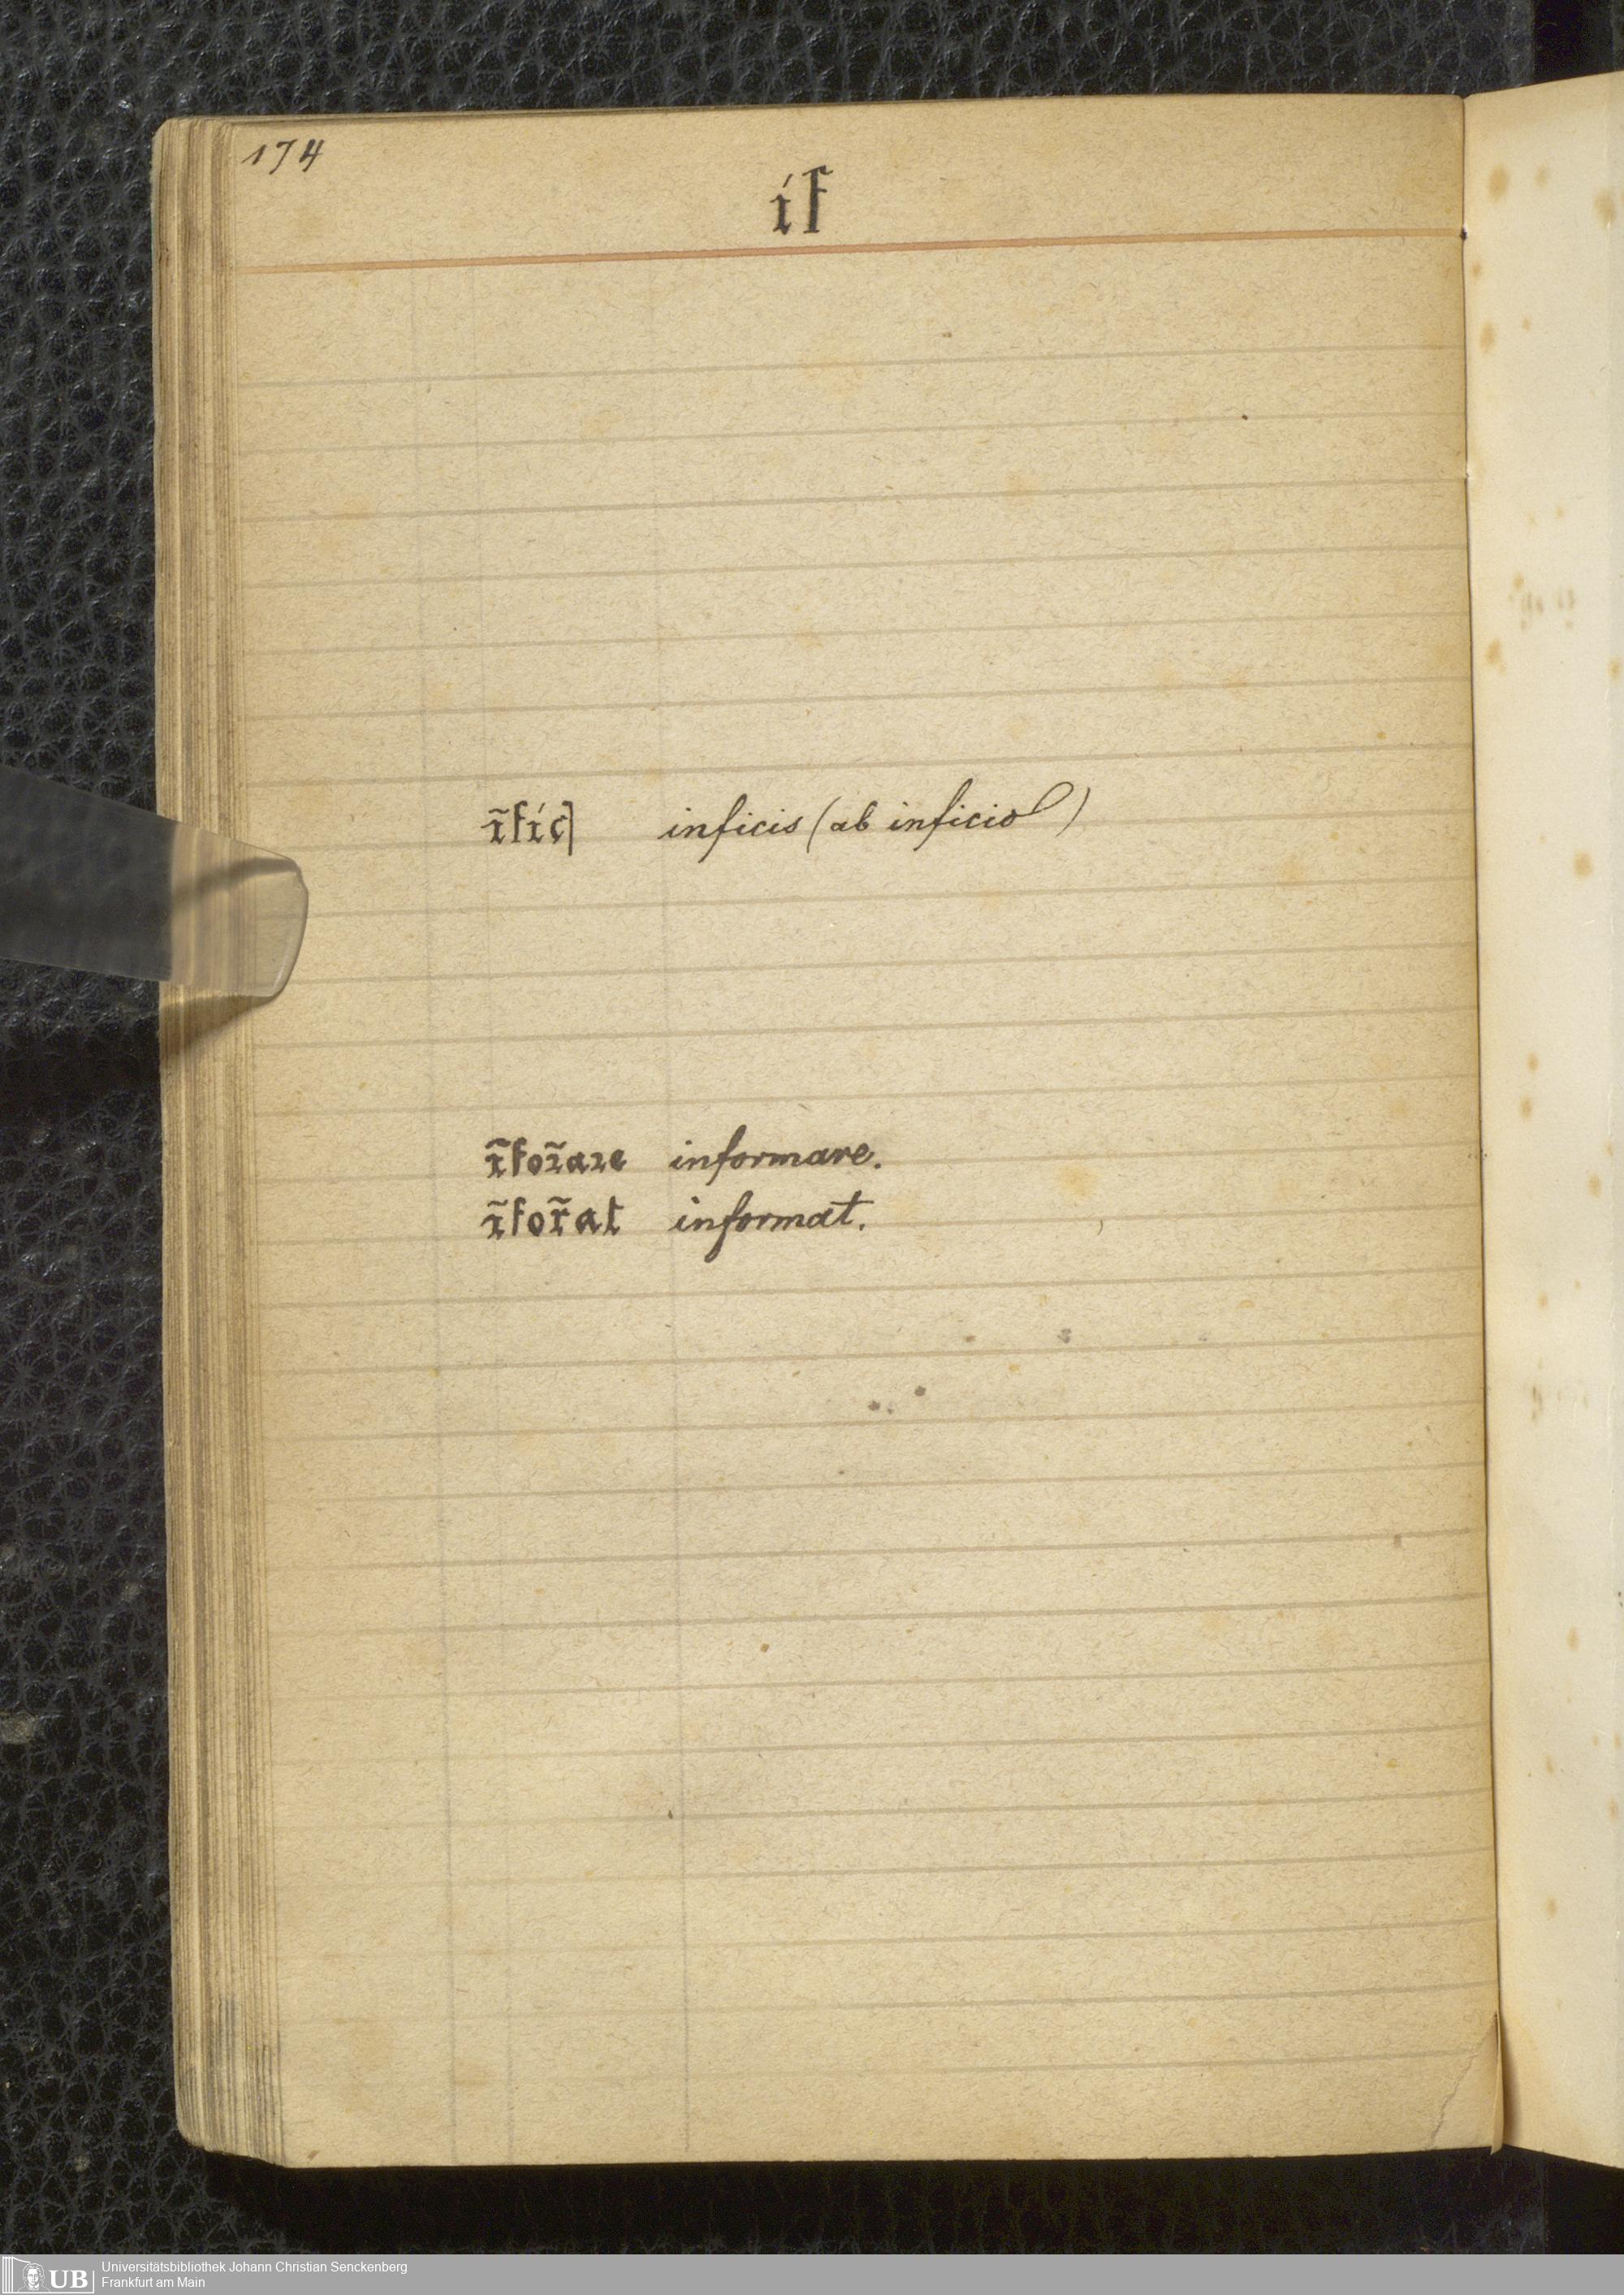 174
if
ĩficꝭ inficis (ab inficio)
ĩfoꝛ̃aꝛe informare.
ĩfor̃at informat.
UB Universitätsbibliothek Johann Christian Senckenberg
Frankfurt am Main